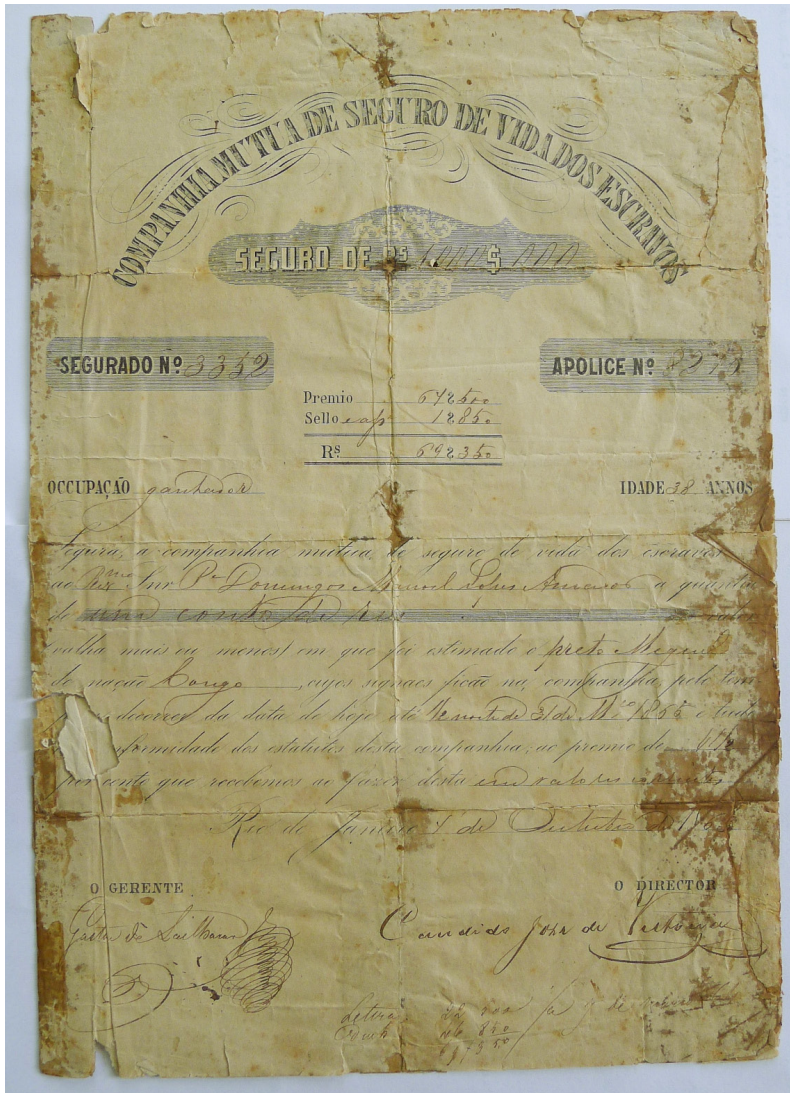 COMPANHIA MUTUA DE SEGURO DE VIDA DOS ESCRAVOS
SEGURO DE Rs 1.000$000
SEGURADO Nº 3352
APOLICE Nº 827
Premio 67$500
Sello e ap 1$850
Rs 69$350
OCCUPAÇÃO ganhador
IDADE 38 ANNOS
Segura, a companhia mutua de seguro de vida dos escravos
ao Snr Pe Domingos Manoel Lopes a quantia
de um conto de reis valor
(valha mais ou menos) em que foi estimado o preto Miguel
de nação Congo, cujos signaes ficão na companhia, pelo tem
decorrer da data de hoje até noite de 31 de 1855 e tudo
nformidade dos estatutos desta companhia; ao premio de 6 3/4
por cento que recebemos ao fazer desta em valores
Rio de Janeiro de Outubro de 185
O GERENTE
O DIRECTOR
Candido José de
Letera 22 500
46 850